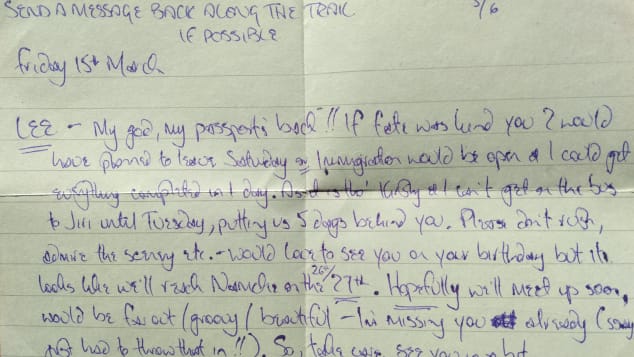 SEND A MESSAGE BACK ALONG THE TRAIL
IF POSSIBLE
5/6
Friday 15th March
LEE - My god, my passport's back!! If fate was kind you & I would
have planned to leave Saturday or Immigration would be open & I could get
everything completed in 1 day. As it is tho' Kirsty & I can't get on the bus
to Jiri until Tuesday, putting us 5 days behind you. Please don't rush,
admire the scenery etc. - would love to see you on your birthday but it
looks like we'll reach Namche on the 26th/27th. Hopefully we'll meet up soon,
would be far out/groovy/beautiful - I'm missing you already (sorry
just had to throw that in!!). So, take care, see you